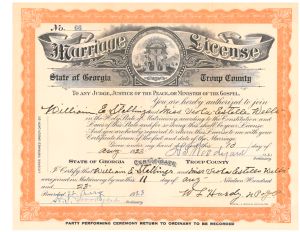 No. 66
Marriage License
State of Georgia Troup County
To any Judge, Justice of the Peace, or Minister of the Gospel.
You are hereby authorized to join
William E Stallings Miss Viola Estelle Webb
in the Holy State of Matrimony according to the
Laws of this State and for so doing this shall be your License.
And you are hereby required to return this License to me with your
Certificate hereon of the fact and date of the Marriage.
Given under my hand and seal this
Aug 1923
State of Georgia CERTIFICATE Troup County
I Certify that William E Stallings and Miss Viola Estelle Webb
were joined in Matrimony by me this 11 day of Aug
23
Recorded Aug 1923 W L Hardy
PARTY PERFORMING CEREMONY RETURN TO ORDINARY TO BE RECORDED